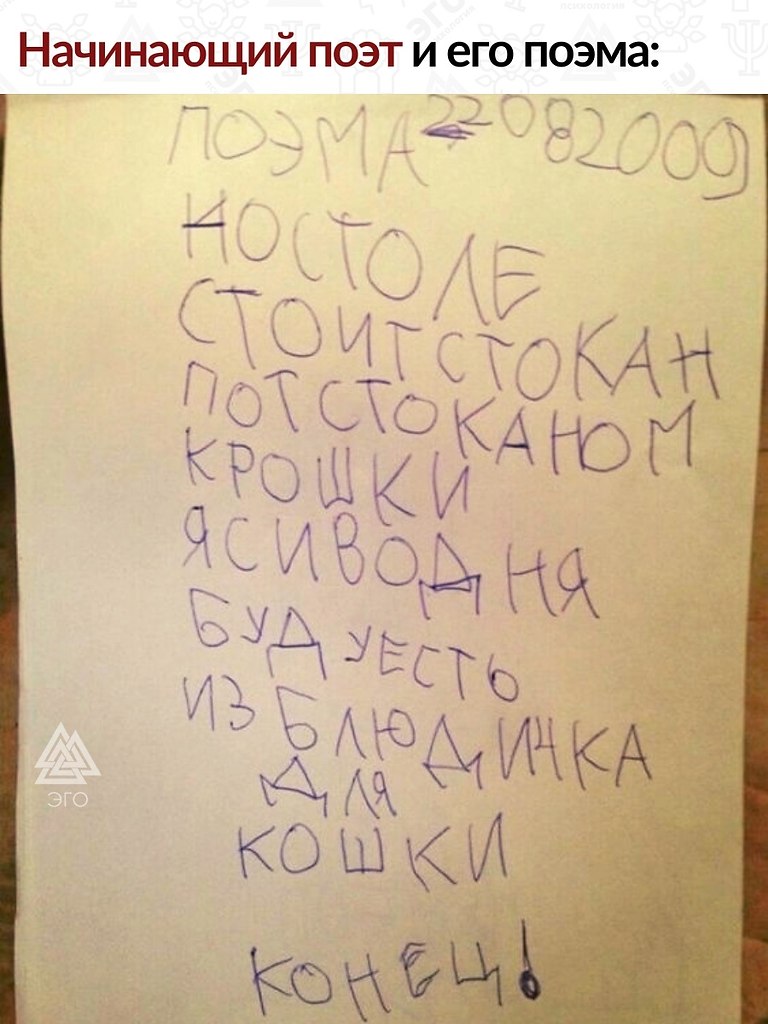 Начинающий поэт и его поэма:
ПОЭМА 22082009
НОСТОЛЕ
СТОИТ СТОКАН
ПОТ СТОКАНОМ
КРОШКИ
Я СИВОДНЯ
БУДУ ЕСТЬ
ИЗ БЛЮДИЧКА
ДЛЯ
КОШКИ
КОНЕЦ!
ЭГО